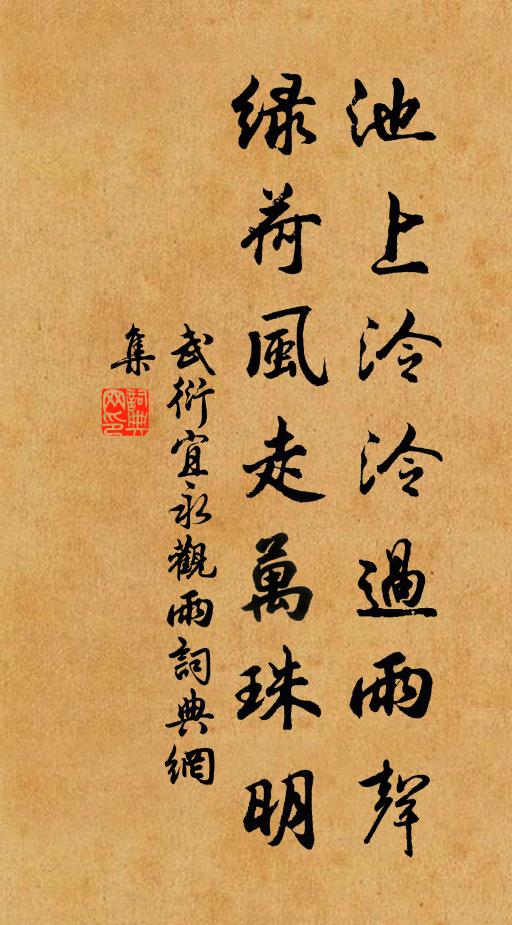 池上泠泠過雨聲
緑荷風走萬珠明
武衍宜永觀雨詞典網
集
詞典
網印